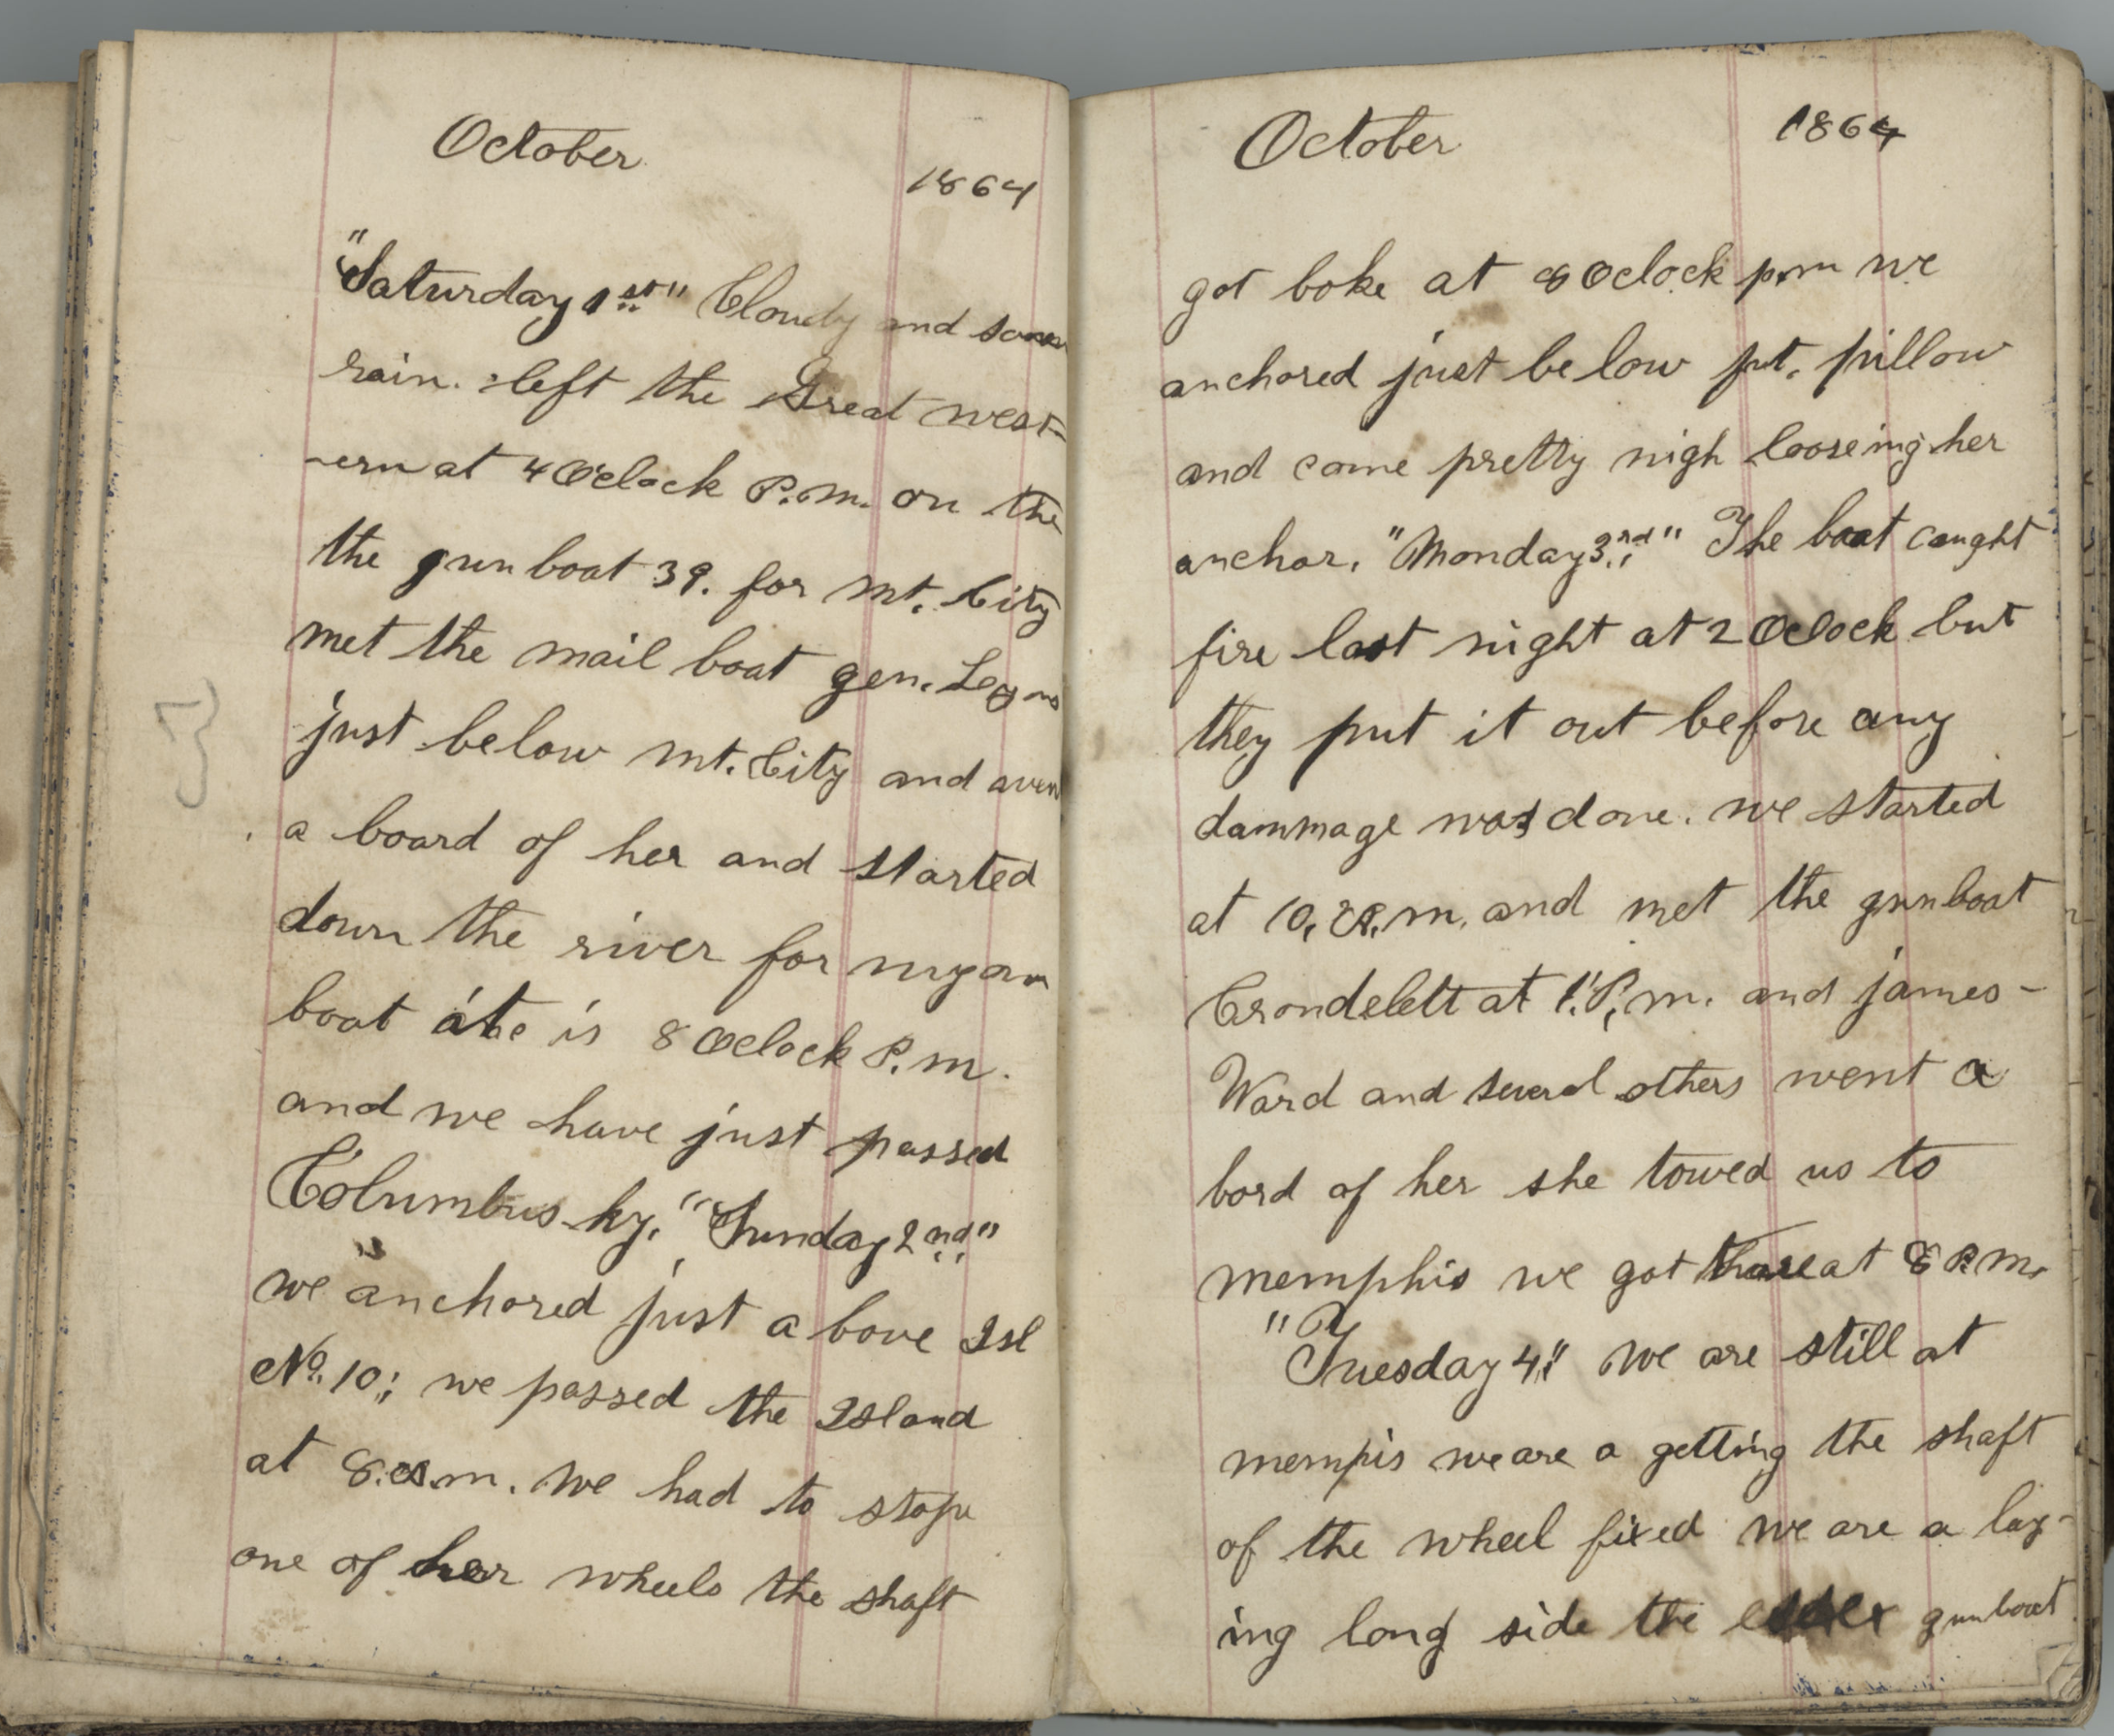 October
1864
"Saturday 1st" Cloudy and some
rain. left the Great west-
-ern at 4 Oclock P.m. on the
the gunboat 39. for mt. City
met the mail boat gen. Lyons
just below mt. City and
a board of her and started
down the river for my own
boat is 8 Oclock P.m.
and we have just passed
Columbus ky. "Sunday 2nd"
we anchored just a bove Isl
No. 10; we passed the Island
at 8. a.m. we had to stop
one of her wheels the shaft
October
1864
got boke at 8 Oclock p.m we
anchored just be low pillow
and came pretty nigh looseing her
anchor. "Monday 3rd" The boat caught
fire last night at 2 Oclock but
they put it out before any
dammage was done. we started
at 10, a.m. and met the gunboat
Crondelett at 1. P.m. and james-
Ward and several others went a
bord of her she towed us to
memphis we got thare at 8 P.m.
"Tuesday 4" we are still at
mempis we are a getting the shaft
of the wheel fixed we are a lay-
ing long side the essex gunboat